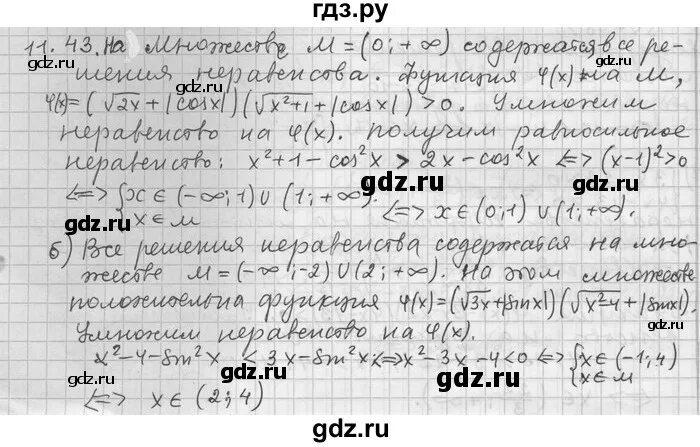 гдз.ру
11.43. На множестве M=(0;+∞) содержатся все ре-
шения неравенства. Функция φ(x) на M,
φ(x)=(√2x+|cosx|)(√x²+1+|cosx|)>0. Умножим
неравенство на φ(x). Получим равносильное
неравенство: x²+1-cos²x > 2x-cos²x <=> (x-1)²>0
gdz.ru
gdz.ru
<=> {x∈(-∞;1)∪(1;+∞).
x∈M
<=> x∈(0;1)∪(1;+∞).
gdz.ru
gdz.ru
б) Все решения неравенства содержатся на мно-
жестве M=(-∞;-2)∪(2;+∞). На этом множестве
gdz.ru
gdz.ru
положительна функция φ(x)=(√3x+|sinx|)(√x²-4+|sinx|).
Умножим неравенство на φ(x).
x²-4-sin²x < 3x-sin²x <=> x²-3x-4<0 <=> {x∈(-1;4)
x∈M
gdz.ru
gdz.ru
<=> x∈(2;4)
gdz.ru